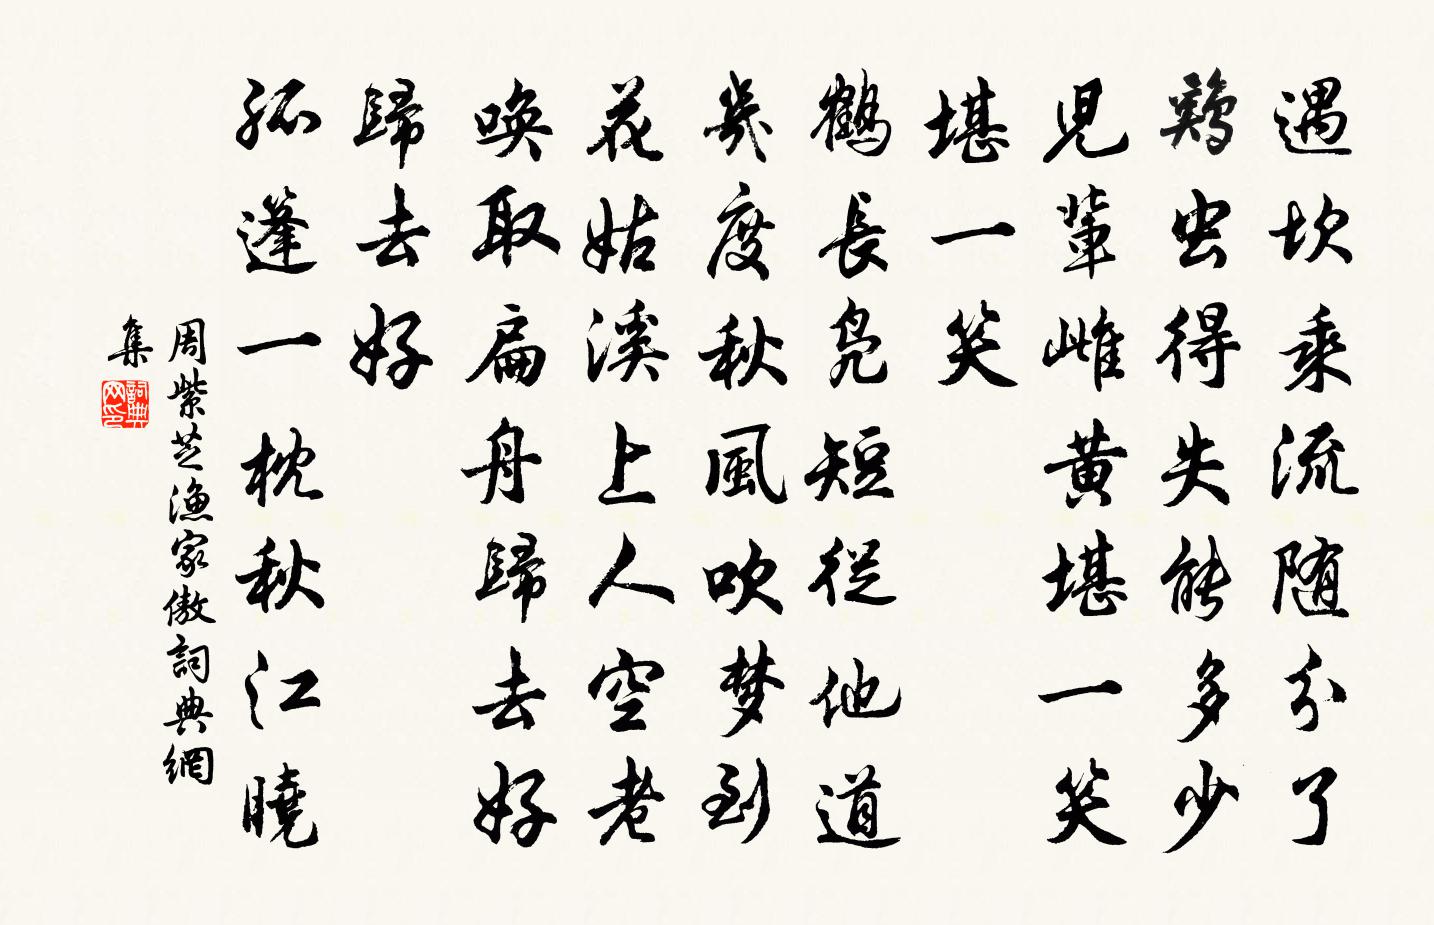 遇坎乘流随分了
鷄虫得失能多少
児輩雌黄堪一笑
堪一笑
鶴長凫短従他道
幾度秋風吹梦到
花姑溪上人空老
唤取扁舟歸去好
歸去好
孤蓬一枕秋江曉
周紫芝漁家傲詞典網
集
詞典
网印